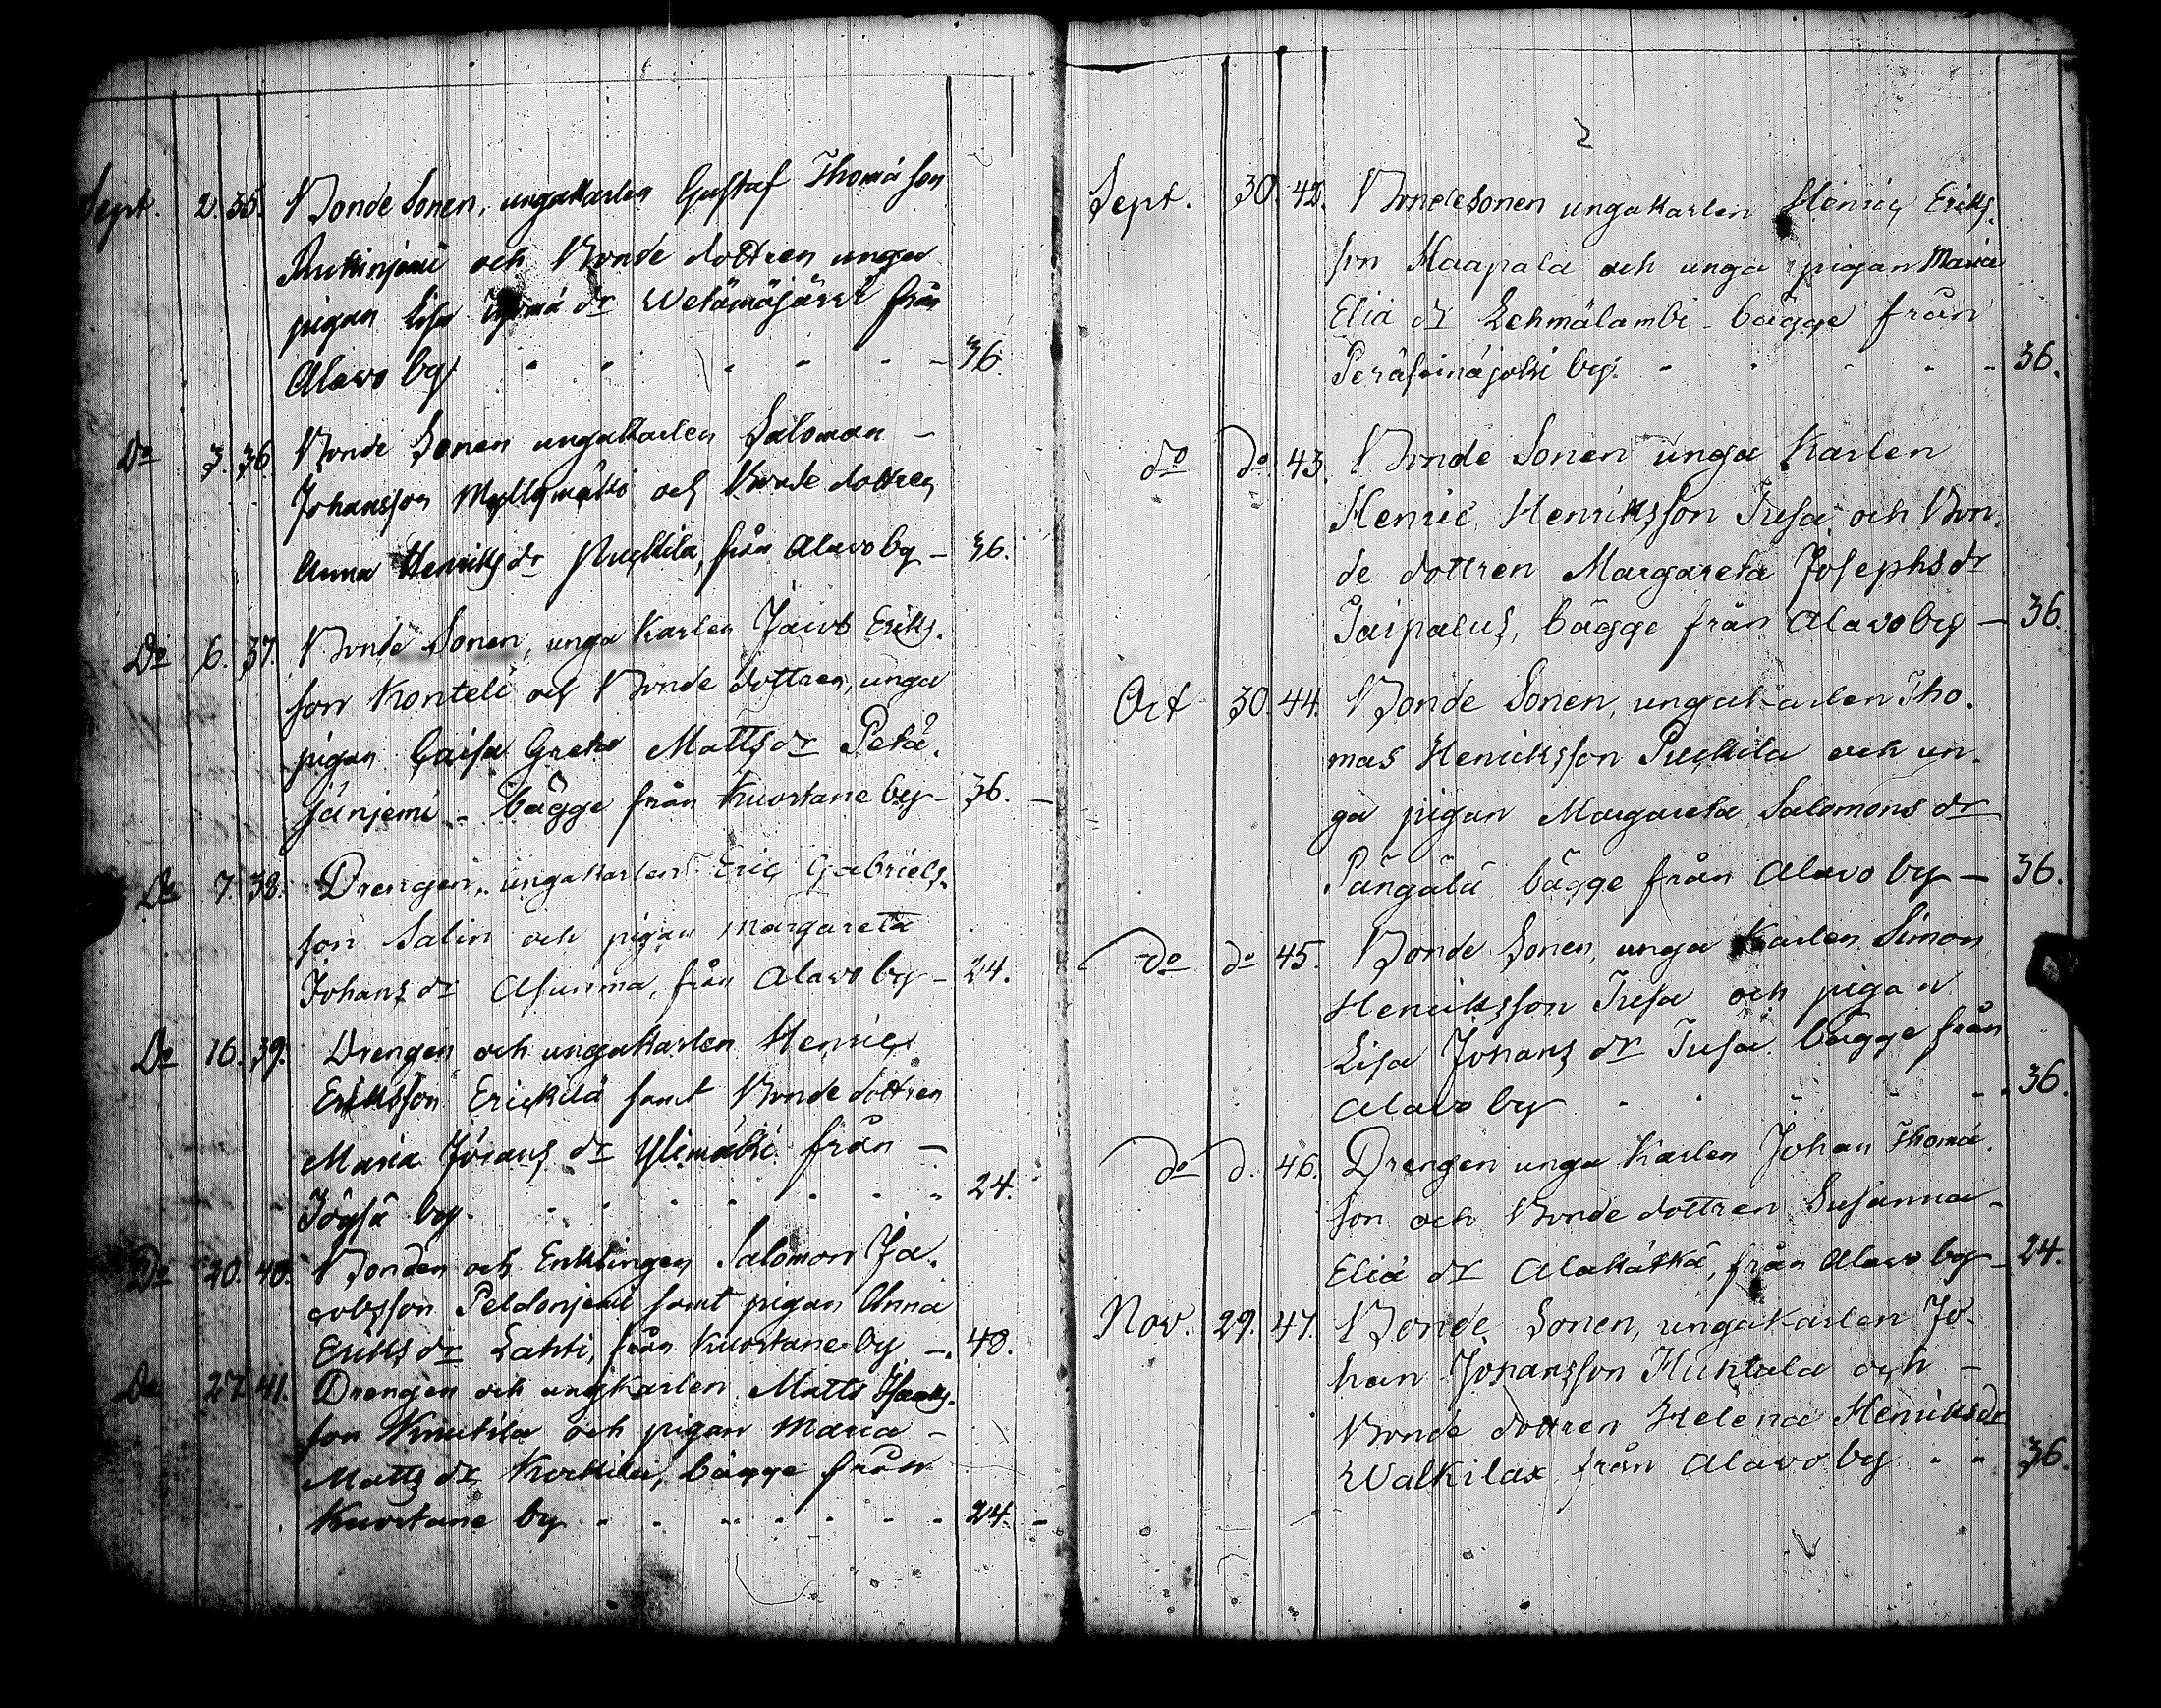 Sept. 2. 35. Bonde Sonen, ungakarlen Gustaf Thomæson
och Bonde dottren unga
pigan Lisa Thomæ dr Wetämäjärvi från
Alavo by - - - - - - 36.
Do 3. 36. Bonde Sonen ungakarlen Salomon -
Johansson Myllymäki och Bonde dottren
Anna Henriks dr Puckila, från Alavo by - 36.
Do 6. 37. Bonde Sonen, unga Karlen Jacob Eriks-
son Konteli och Bonde dottren, unga
pigan Caisa Greta Matts dr Petä-
jäniemi - bägge från Kuortane by - 36. -
Do 7. 38. Drengen, ungakarlen Eric Gabriels-
son Salin och pigan Margareta
Johans dr Asunma, från Alavo by - 24.
Do 16. 39. Drengen och ungakarlen Henric
Eriksson Erickilä samt Bonde dottren
Maria Johans dr Ylimäki från -
by - - - - - - - 24.
Do 20. 40. Bonden och Enklingen Salomon Ja-
cobsson Peldoniemi samt pigan Anna
Eriks dr Lahti, från Kuortane by - 48.
Do 27. 41. Drengen och ungkarlen Matts Isaks-
son Knuutila och pigan Maria -
Matts dr bägge från
Kuortane by - - - - - - - 24. -
2
Sept. 30. 42. Bondesonen ungakarlen Henric Eriks-
son Haapala och unga pigan Maria
Eliæ dr Lehmälambi - bägge från
Peräseinäjoki by. - - - - - 36.
do do 43. Bonde Sonen unga Karlen
Henric Henriksson Tusa och Bon-
de dottren Margareta Josephs dr
Taipalus, bägge från Alavo by - 36.
Oct 30. 44. Bonde Sonen, ungakarlen Tho-
mas Henriksson Puckila och un-
ga pigan Margareta Salomons dr
Pängälä bägge från Alavo by - 36.
do do 45. Bonde Sonen, unga Karlen Simon
Henriksson Tusa och pigan
Lisa Johans dr Tusa bägge från
Alavo by - - - - - 36.
do d. 46. Drengen unga Karlen Johan Thomæ-
son och Bonde dottren Susanna -
Eliæ dr Alakätkä, från Alavo by - 24.
Nov. 29. 47. Bonde Sonen, ungakarlen Jo-
han Johansson Huhtala och -
Bonde dottren Helena Henriks dr
Walkilax från Alavo by - - 36.